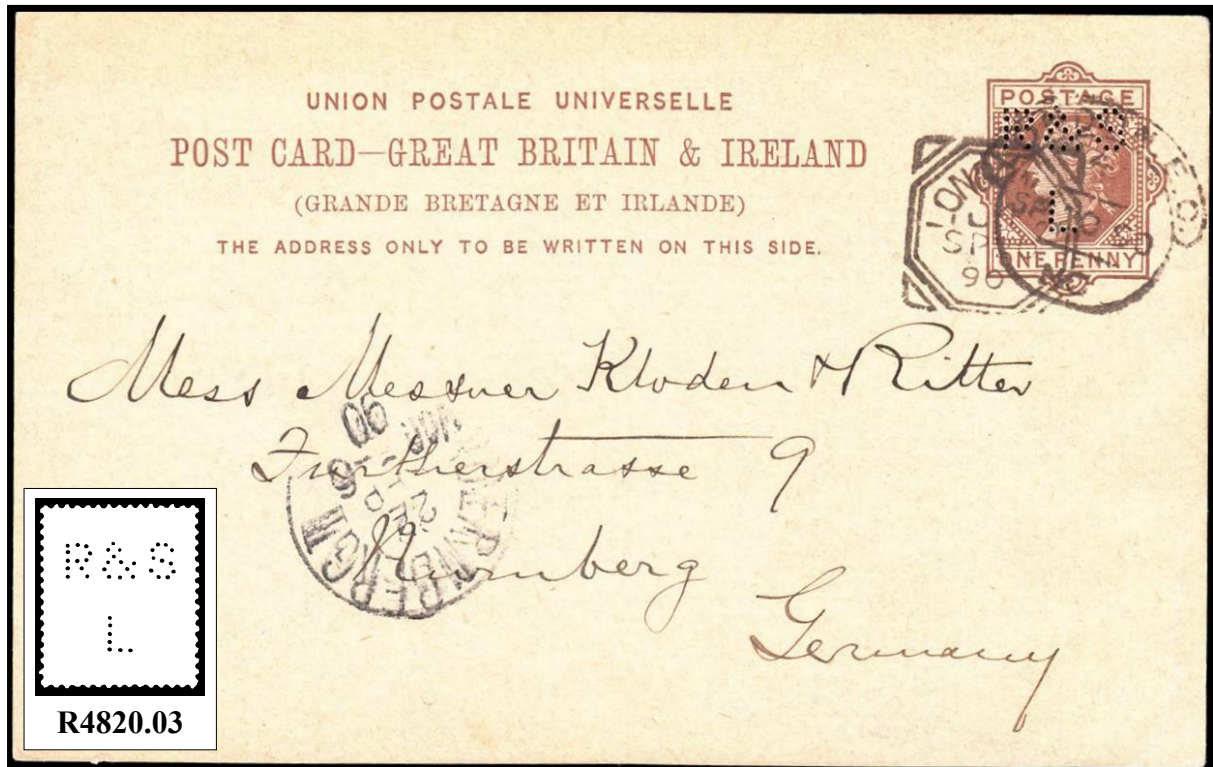 UNION POSTALE UNIVERSELLE
POST CARD—GREAT BRITAIN & IRELAND
(GRANDE BRETAGNE ET IRLANDE)
THE ADDRESS ONLY TO BE WRITTEN ON THIS SIDE.
POSTAGE
R&S
L
ONE PENNY
LON
SP
90
Mess Messner Kloden & Ritter
Furtherstrasse 9
Nurnberg
Germany
SEP
90
R & S
L
R4820.03